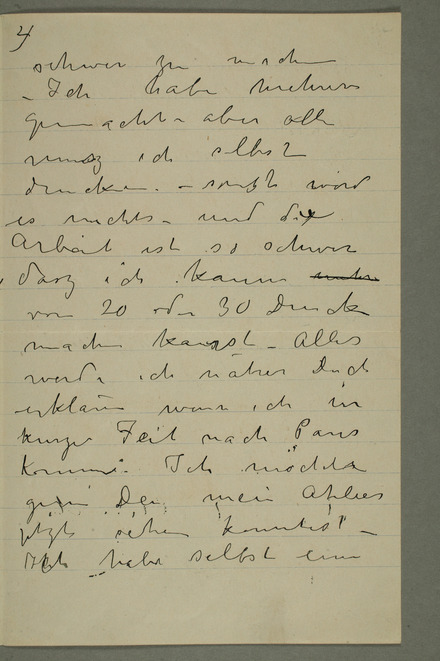 4
schwer zu machen
- Ich habe mehrere
gemacht - aber alle
muss ich selbst
drucken. - sonst wird
es nichts - und die
Arbeit ist so schwer
dasz ich kaum
von 20 oder 30 Druck
machen kannst - Alles
werde ich näher Dich
erklären wenn ich in
kurzer Zeit nach Paris
komme. Ich möchte
Du mein Atelies
jetzt sehen konntest -
Ich habe selbst eine